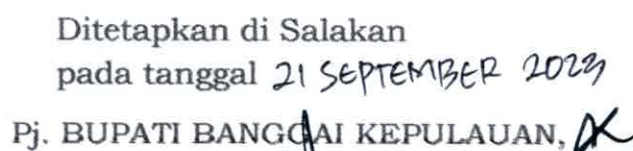 Ditetapkan di Salakan
pada tanggal 21 SEPTEMBER 2023
Pj. BUPATI BANGGAI KEPULAUAN,